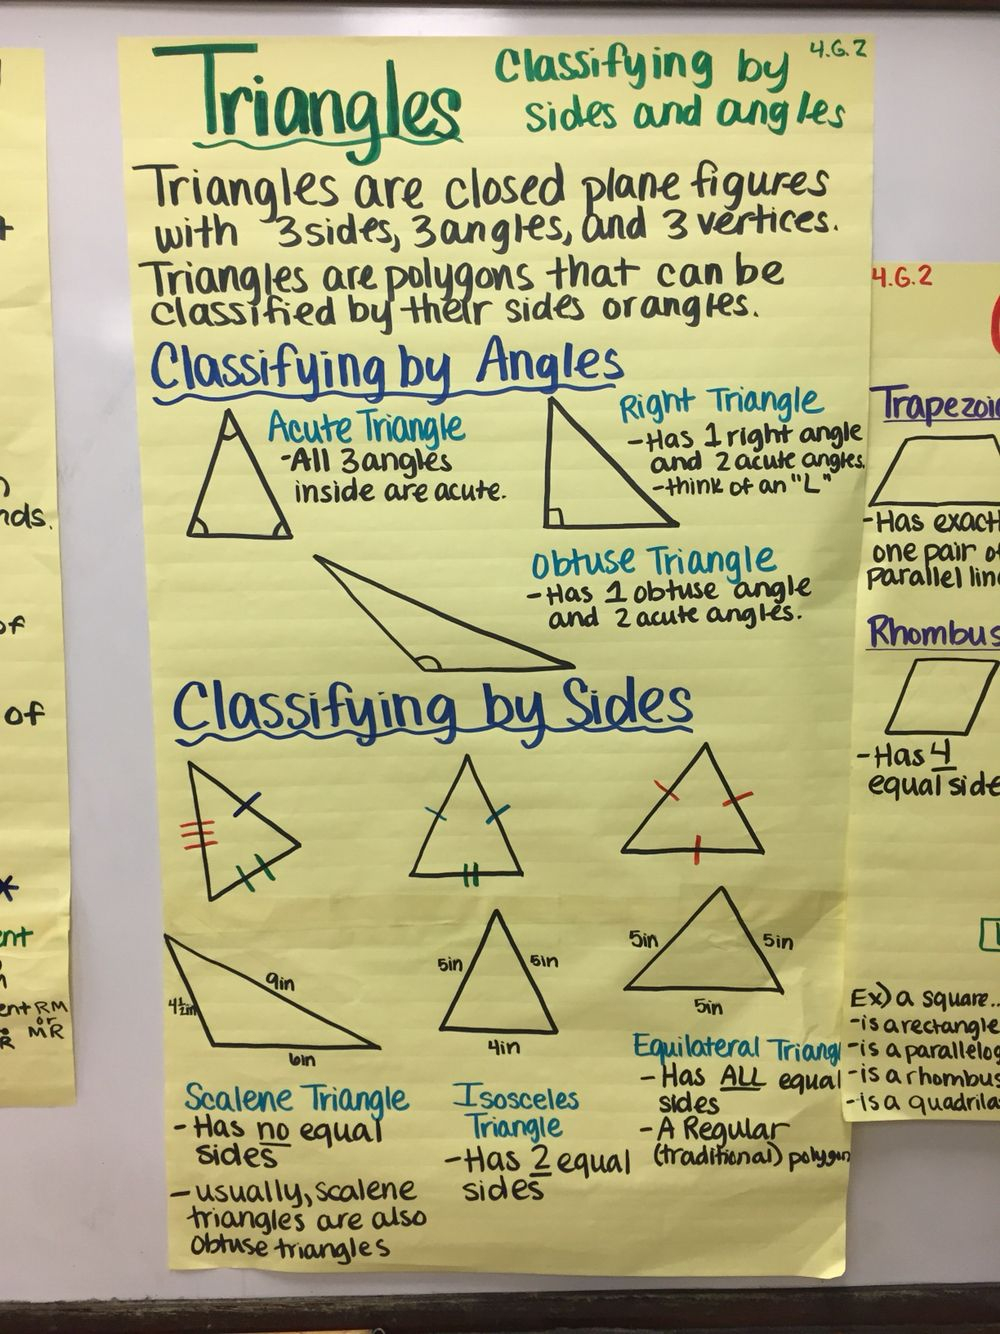 Triangles
Classifying by
sides and angles
4.G.2
Triangles are closed plane figures
with 3 sides, 3 angles, and 3 vertices.
Triangles are polygons that can be
classified by their sides or angles.
Classifying by Angles
Acute Triangle
-All 3 angles
inside are acute.
Right Triangle
-Has 1 right angle
and 2 acute angles.
-think of an "L"
Obtuse Triangle
-Has 1 obtuse angle
and 2 acute angles.
Classifying by Sides
4½in
9in
6in
5in
5in
4in
5in
5in
5in
Scalene Triangle
-Has no equal
sides
-usually, scalene
triangles are also
obtuse triangles
Isosceles
Triangle
-Has 2 equal
sides
Equilateral Triangl
-Has ALL equal
sides
-A Regular
(traditional) polygon
4.G.2
Trapezoi
-Has exact
one pair o
parallel lin
Rhombus
-Has 4
equal side
Ex) a square...
-is a rectangle
-is a parallelog
-is a rhombus
-is a quadrila
nds.
of
of
ent
ent RM
or
R MR